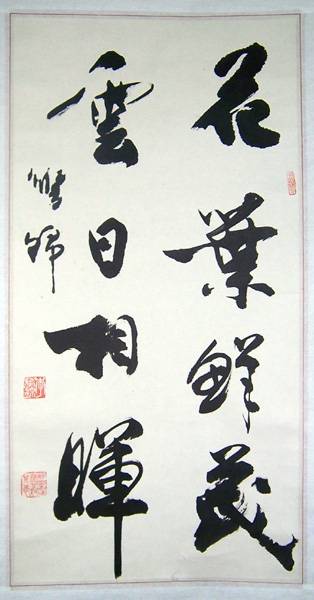 花葉鮮茂
雲日相暉